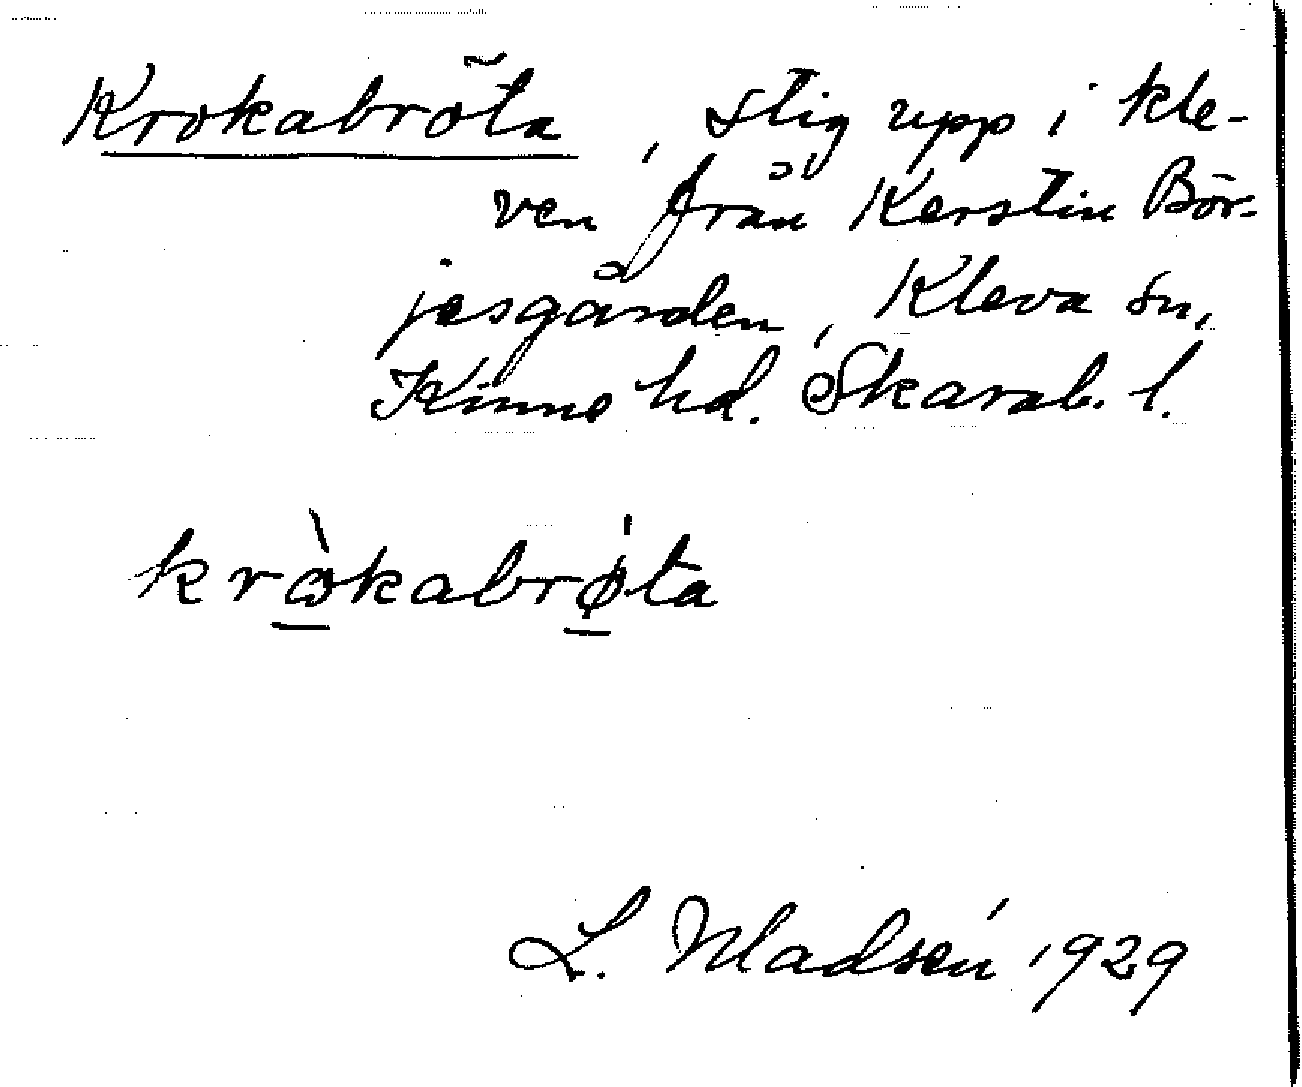 Krokabröta, stig upp i kle-
ven från Kerstin Bör-
jesgården, Kleva sn,
Kinne hd. Skarab. l.
krὼkabrø̍ta
L. Madsén 1929